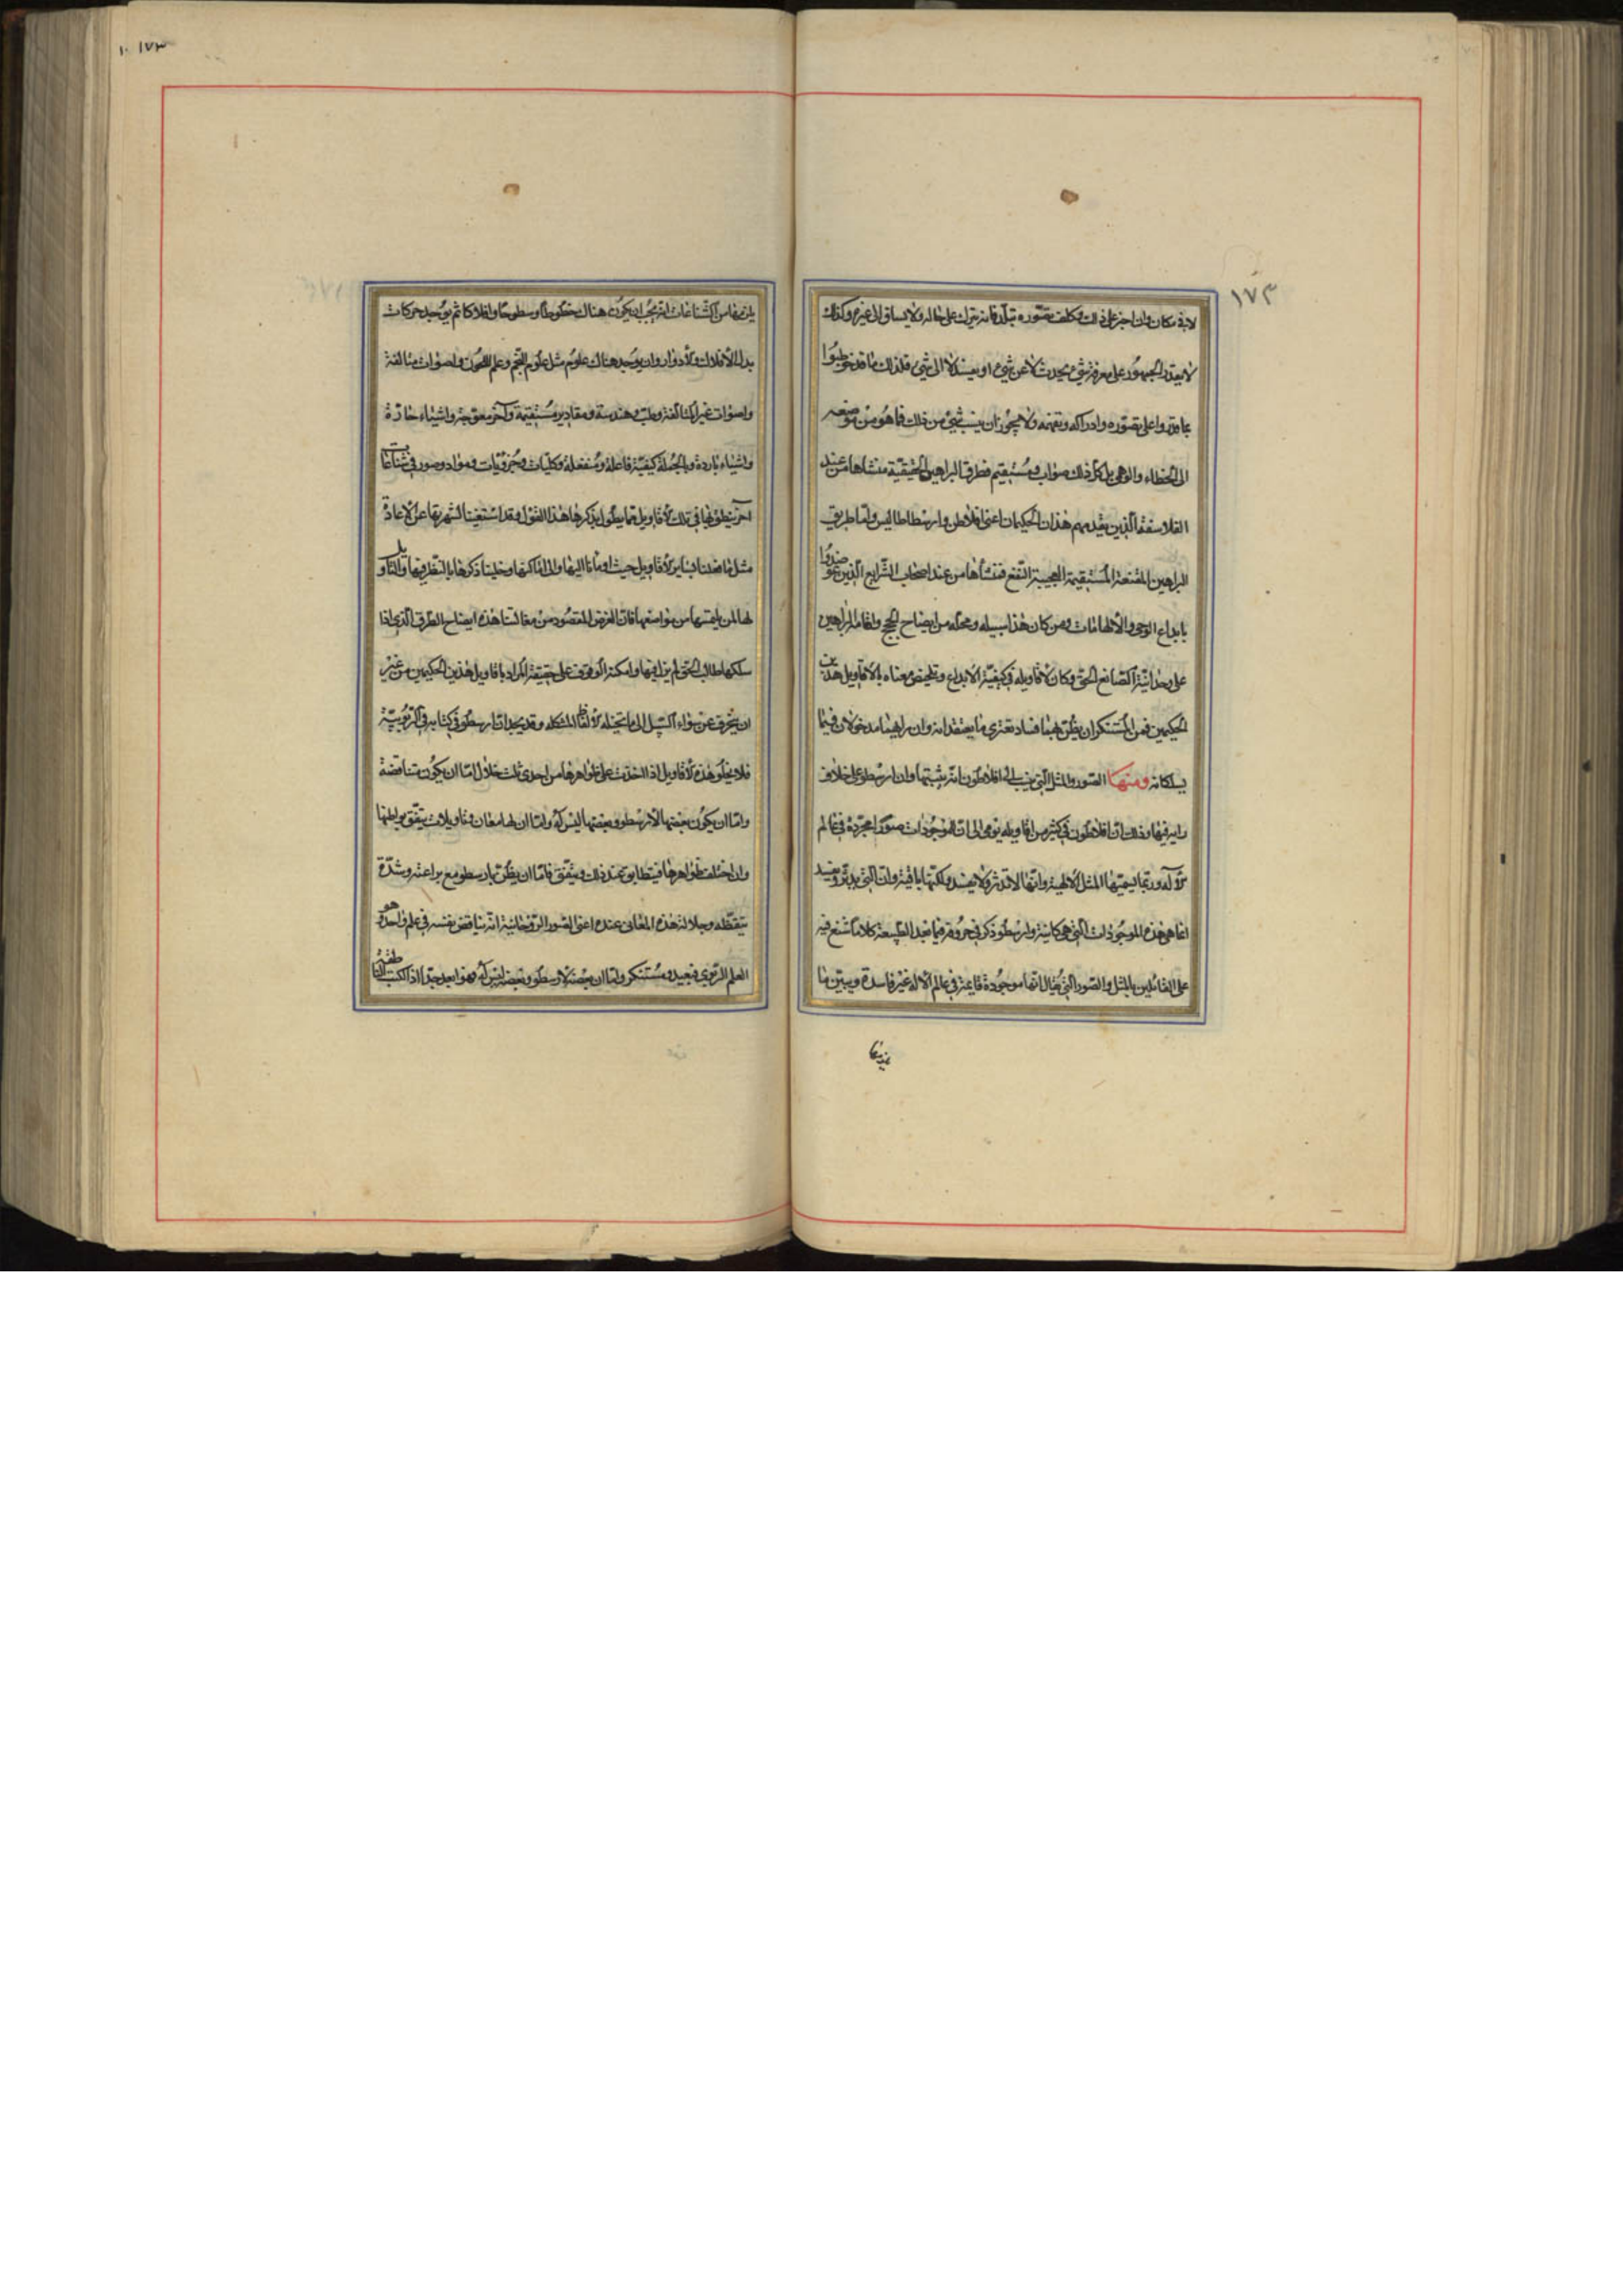 ١٧٣
لا في مكان وان اجبر على ذلك وكلف تصوره تبلد فانه يترك على حاله ولا يساق الى غيره وكذلك
لا يقدر الجمهور على معرفة شيء يحدث لا عن شيء او يفسد لا الى شيء فلذلك ما قد خوطبوا
بما قدروا على تصوره وادراكه وتفهمه ولا يجوز ان ينسب شيء من ذلك فما هو من موضعه
الى الخطاء والوهى بل كل ذلك صواب ومستقيم فطرق البراهين الحقيقية منشاها من عند
الفلاسفة الذين يقدمهم هذان الحكيمان اعنى افلاطن وارسطاطاليس واما طريق
البراهين المقنعة المستقيمة العجيبة النفع فمنشأها من عند اصحاب الشرايع الذين عوضدوا
بابداع الوحى والالهامات ومن كان هذا سبيله ومحله من ايضاح الحجج واقامة البراهين
على وحدانية الصانع الحق وكان لاقاويله فى كيفية الابداع وتلخيص معناه بالاقاويل هذين
الحكيمين فمن المستنكر ان يظن بهما فساد تعترى ما يعتقدانه وان براهينهما مدخولان فيما
يسلكانه ومنها الصور والمثل التي ينسب الى افلاطون انه يثبتها وان ارسطو على خلاف
رايه فيها وذلك ان افلاطون فى كثير من اقاويله يومى الى ان للموجودات صورا مجردة فى عالم
الاله وربما يسميها المثل الالهية وانها لا تدثر ولا يفسد ولكنها باقية وان التى يدثر ويفسد
انما هى هذه الموجودات التى هى كاينة وارسطو ذكر فى حروفه فيما بعد الطبيعة كلاما شنع فيه
على القائلين بالمثل والصور التي يقال انها موجودة قايمة فى عالم الاله غير فاسدة ويبين ما
١٠ ١٧٣
يلزمها من الشناعات انه يجب ان يكون هناك خطوطا وسطوحا وافلاكا ثم يوجد حركات
بدل الافلاك والادوار وان يوجد هناك علوم مثل علوم النجم وعلم اللحون واصوات متالفة
واصوات غير المتالفة وطب وهندسة ومقادير مستقيمة واخر معوجة واشياء حارة
واشياء باردة وبالجملة كيفية فاعلة ومنفعلة وكليات وجزويات ومواد وصور فى شناعات
اخر ينطق بها فى تلك الاقاويل مما يطول بذكرها هذا القول وقد استغنينا لشهرتها عن الاعادة
مثل ما فعلنا بساير الاقاويل حيث اومأنا اليها والى اماكنها وخلينا ذكرها بالنظر فيها والتاويل
لها لمن يلتمسها من مواضعها فان الغرض المقصود من مقالتنا هذه ايضاح الطرق الذى اذا
سلكها طالب الحق لم يزل فيها وامكنه الوقوف على حقيقة المراد باقاويل هذين الحكيمين من غير
ان ينحرف عن سواء السبيل الى ما يتخيله الالفاظ المشكلة وقد يجد ان ارسطو فى كتابه فى الربوبية
فلا يخلو هذه الاقاويل اذا اخذت على ظواهرها من احدى ثلث خلال اما ان يكون متناقضة
واما ان يكون بعضها لارسطو وبعضها ليس له واما ان لها معان وتاويلات يتفق بواطنها
وان اختلف ظواهرها فيتطابق عند ذلك ويتفق فاما ان يظن بارسطو مع براعته وشدة
تيقظه وجلالة هذه المعانى عنده اعنى الصور الروحانية انه يناقض نفسه فى علم واحد وهو
العلم الربوبى فبعيد ومستنكر واما ان بعضه لارسطو وبعضه ليس له وهو ابعد جدا اذ الكتب الناطقة